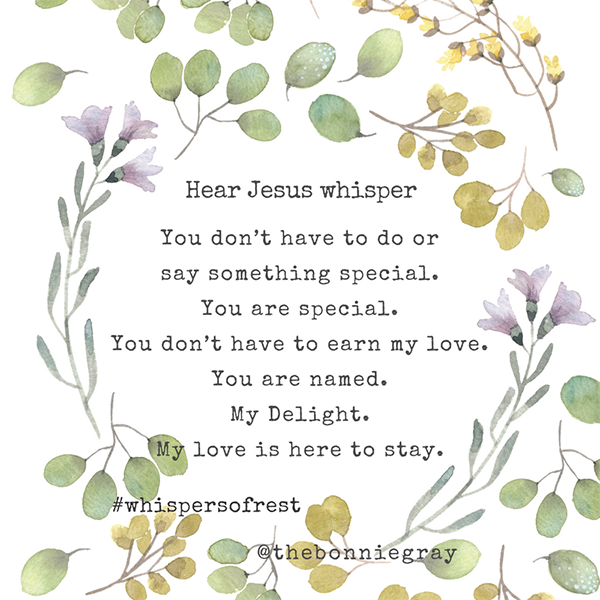 Hear Jesus whisper
You don't have to do or
say something special.
You are special.
You don't have to earn my love.
You are named.
My Delight.
My love is here to stay.
#whispersofrest
@thebonniegray